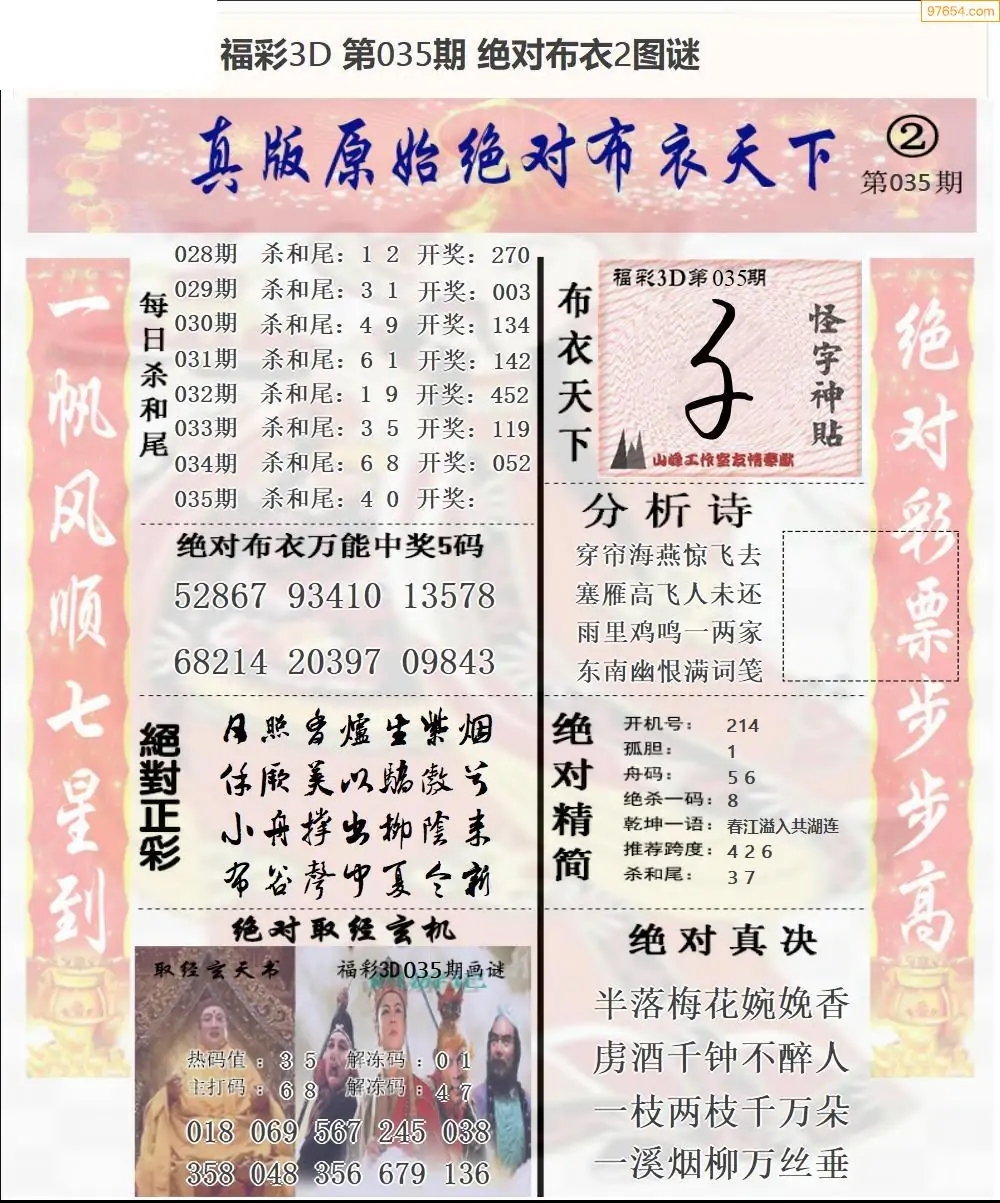 97654.com
福彩3D 第035期 绝对布衣2图谜
真版原始绝对布衣天下
②
第035期
一帆风顺七星到
每日杀和尾
028期 杀和尾：1 2 开奖：270
029期 杀和尾：3 1 开奖：003
030期 杀和尾：4 9 开奖：134
031期 杀和尾：6 1 开奖：142
032期 杀和尾：1 9 开奖：452
033期 杀和尾：3 5 开奖：119
034期 杀和尾：6 8 开奖：052
035期 杀和尾：4 0 开奖：
绝对布衣万能中奖5码
52867 93410 13578
68214 20397 09843
絕對正彩
日照香爐生紫烟
任厥美以驕傲兮
小舟撑出柳陰来
布谷聲中夏令新
绝对取经玄机
取经玄天书
福彩3D035期画谜
热码值：3 5 解冻码：0 1
主打码：6 8 解冻码：4 7
018 069 567 245 038
358 048 356 679 136
布衣天下
福彩3D第035期
子
怪字神贴
山峰工作室友情奉献
分析诗
穿帘海燕惊飞去
塞雁高飞人未还
雨里鸡鸣一两家
东南幽恨满词笺
绝对精简
开机号：214
孤胆：1
舟码：5 6
绝杀一码：8
乾坤一语：春江溢入共湖连
推荐跨度：4 2 6
杀和尾：3 7
绝对真决
半落梅花婉娩香
虏酒千钟不醉人
一枝两枝千万朵
一溪烟柳万丝垂
绝对彩票步步高